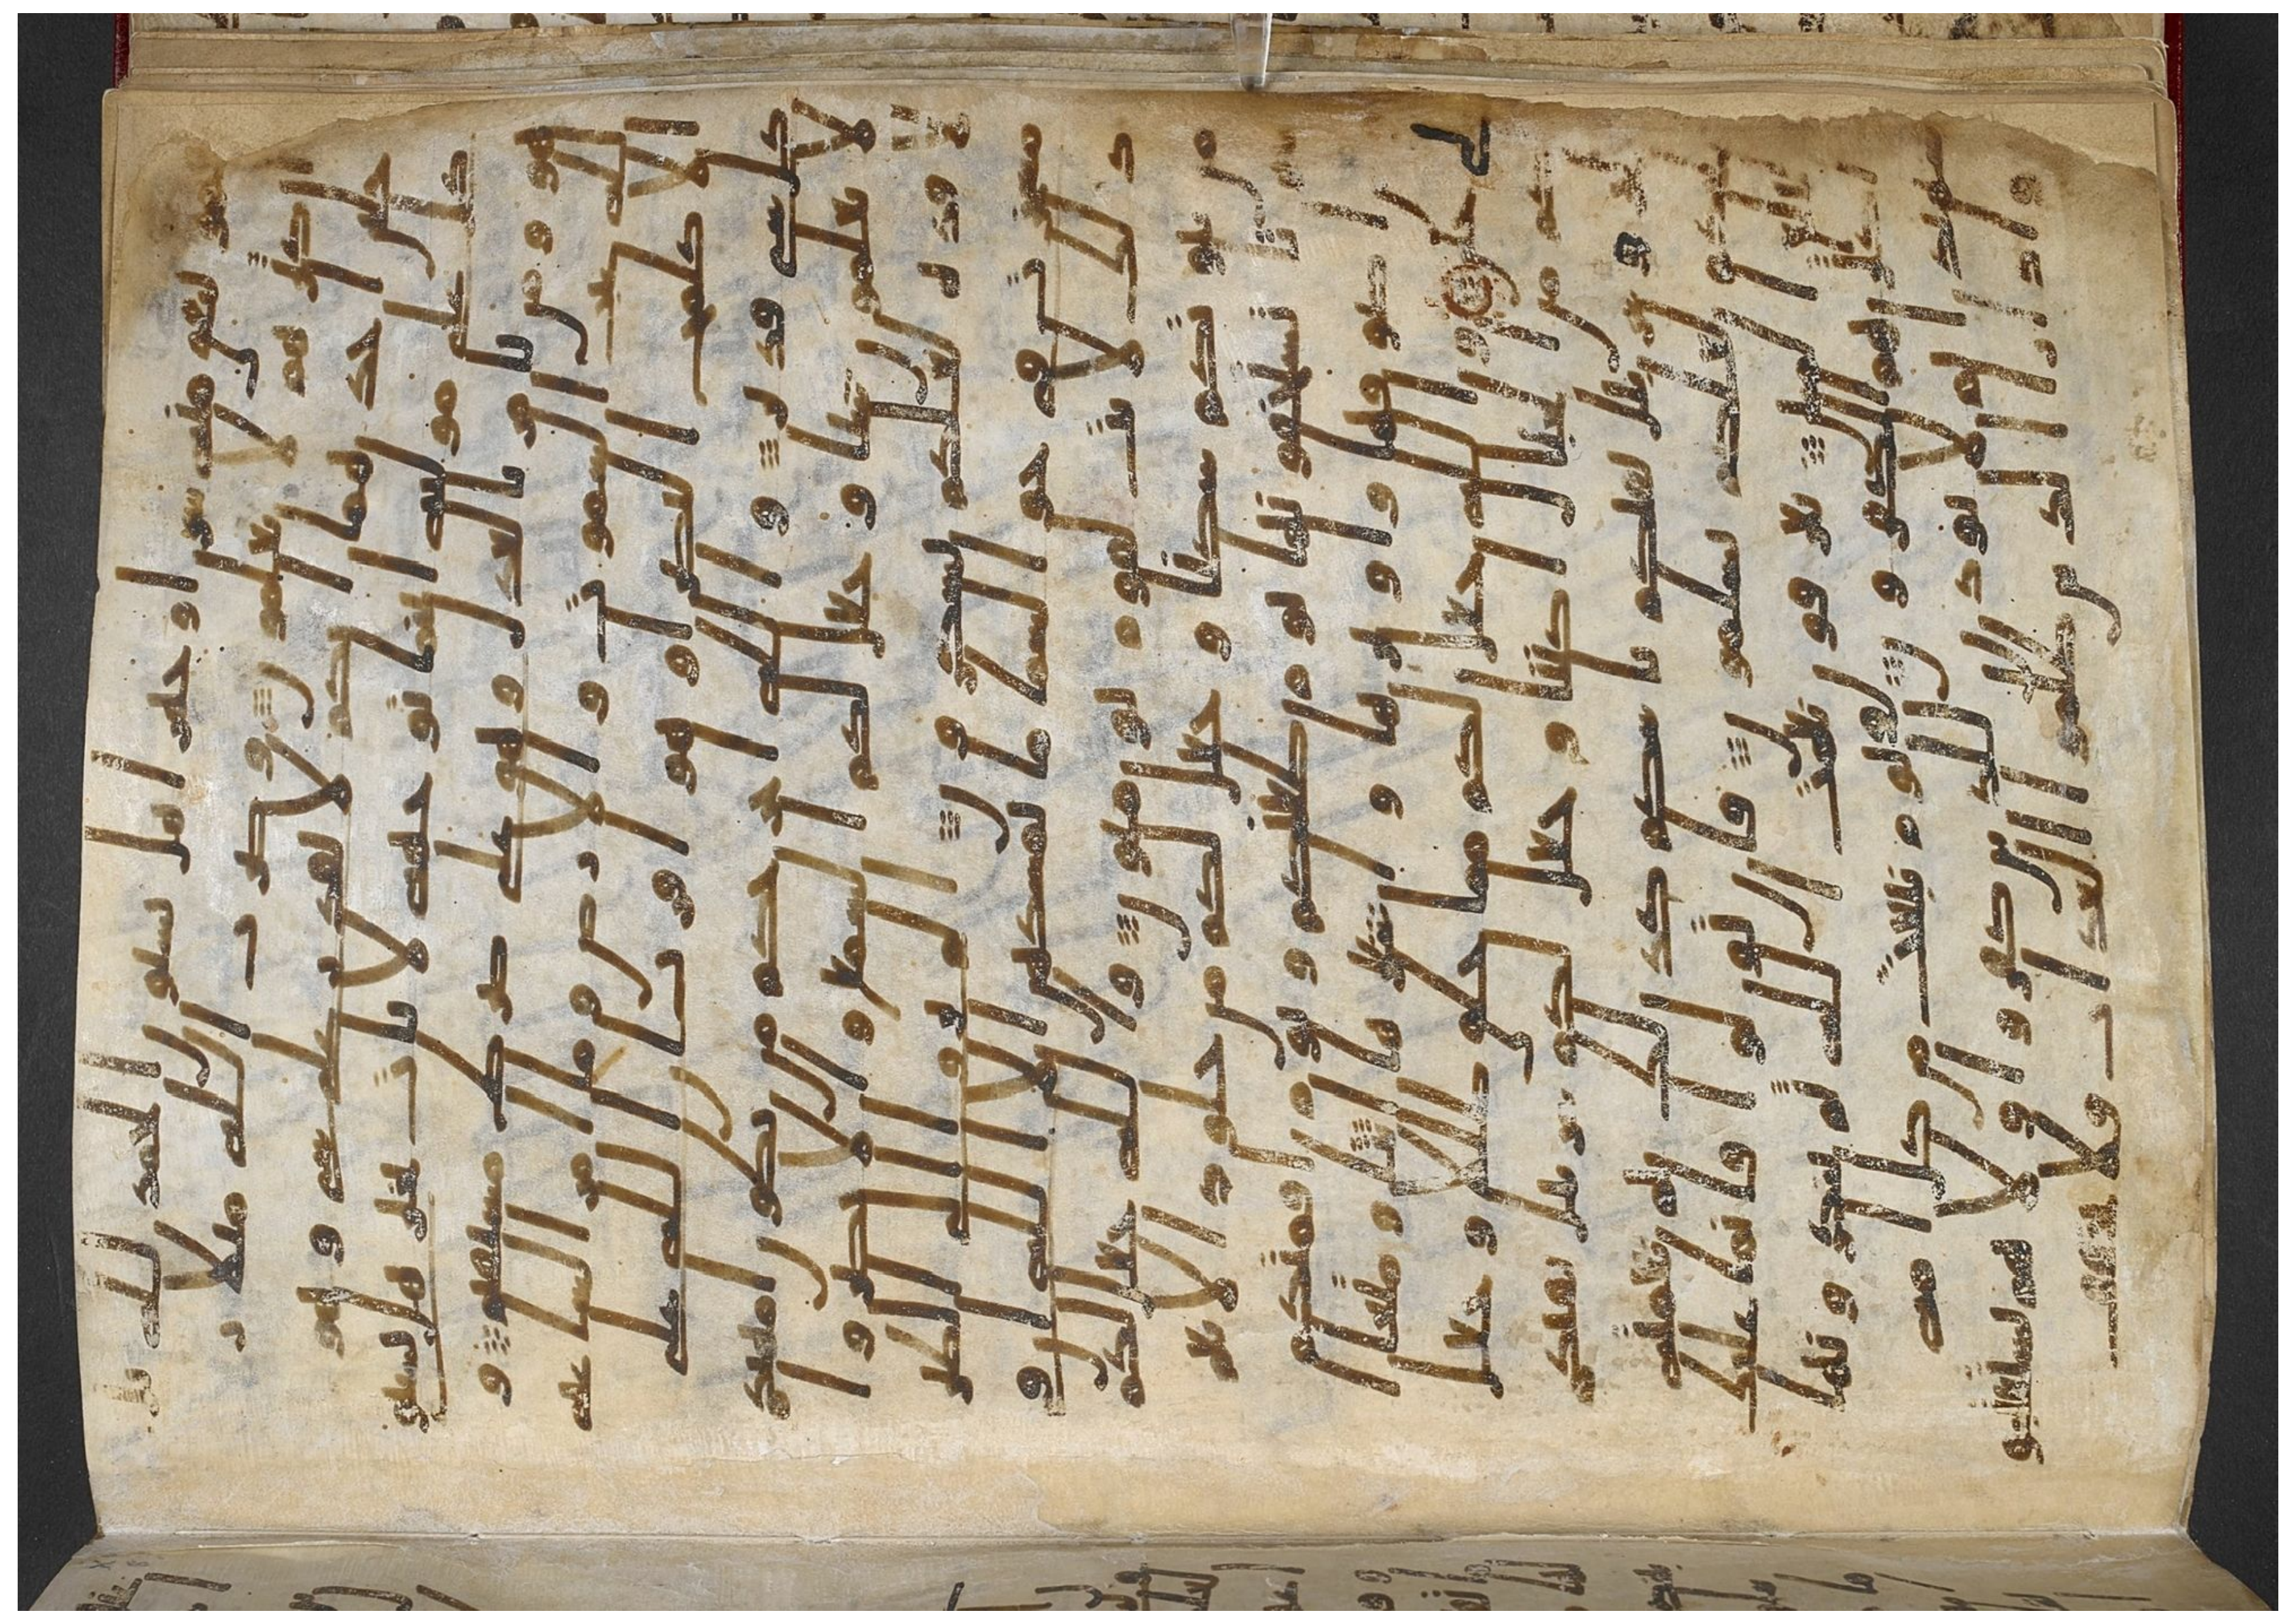 ينفق منه سرا وجهرا هل يستون الحمد لله بل
اكثرهم لا يعلمون وضرب الله مثلا ر
جلين احدهما ابكم لا يقدر على شي وهو
كل على موليه اينما يوجهه لا يات بخير هل يستوي
هو ومن يامر بالعدل وهو على صرط مستقيم و
لله غيب السموت والارض وما امر الساعه
الا كلمح البصر او هو اقرب ان الله على
كل شي قدير والله اخرجكم من بطون امهتكم
لا تعلمون شيا وجعل لكم السمع والابصر وا
لافده لعلكم تشكرون الم يروا الى الطير
مسخرت في جو السما ما يمسكهن الا الله ا
ن في ذلك لايت لقوم يومنون والله جعل لكم
من بيوتكم سكنا وجعل لكم من جلود الانعم
بيوتا تستخفونها يوم ظعنكم ويوم اقمتكم
ومن اصوافها واوبارها واشعارها اثثا ومتعا ا
لى حين والله جعل لكم مما خلق ظللا وجعل
لكم من الجبال اكننا وجعل لكم سربيل تقيكم
الحر وسربيل تقيكم باسكم كذلك يتم نعمته
عليكم لعلكم تسلمون فان تولوا فانما عليك
البلغ المبين يعرفون نعمت الله ثم ينكرونها
واكثرهم الكفرون ويوم نبعث من كل امه
شهيدا ثم لا يوذن للذين كفروا ولا هم يستعتبون
واذا را الذين ظلموا العذاب فلا يخفف